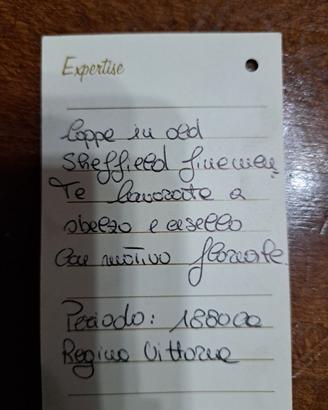 Expertise
Coppe in old
Sheffield finemen
Te lavorate a
sbalzo e cesello
con motivo floreale
Periodo: 1880 ca
Regina Vittoria